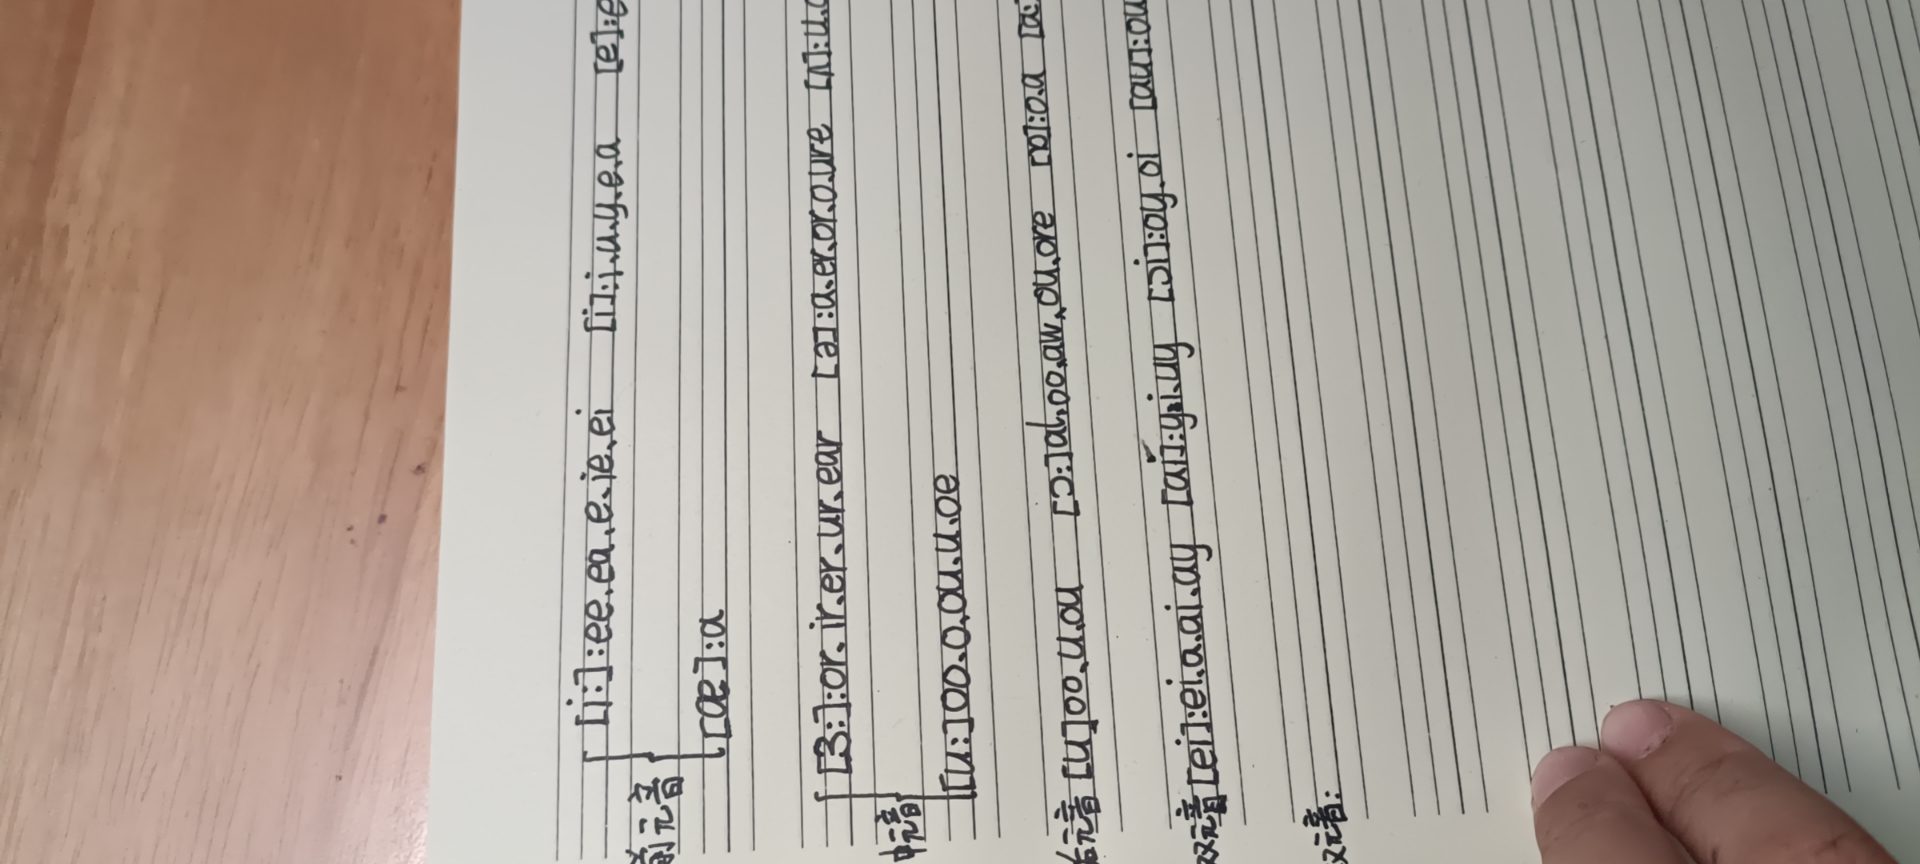 [i:]:ee.ea.e.ie.ei [i]:i.u.y.e.a [e]:e
前元音
[æ]:a
[3:]:or.ir.er.ur.ear [ə]:a.er.or.o.ure [ʌ]:u.o
中元音
[u:]oo.o.ou.u.oe
后元音[u]oo.u.ou [ɔ:]al.oo.aw.ou.ore [ɒ]:o.a [a:
双元音[ei]:ei.a.ai.ay [ai]:y.i.uy [ɔi]:oy.oi [au]:ou
双元音: